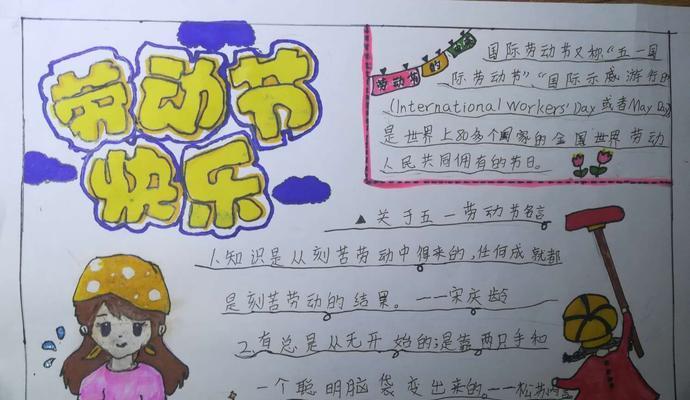 劳动节
快乐
劳动节的
国际劳动节又称“五一国
际劳动节”、“国际示威游行的
(International Workers' Day 或者May Day)
是世界上80多个国家的全国世界劳动
人民共同拥有的节日。
▲关于五一劳动节名言
1.知识是从刻苦劳动中得来的,任何成就都
是刻苦劳动的结果。——宋庆龄
2.有总是从无开始的;是靠两只手和
一个聪明脑袋变出来的。——松苏内